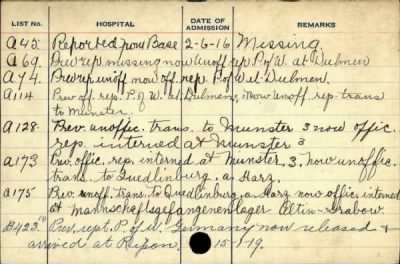 LIST NO. HOSPITAL DATE OF ADMISSION REMARKS
A45. Reported from Base 2-6-16 Missing.
A69. Prev. rep. missing now unoff. rep. P of W. at Dulmen
A74. Prev. rep. unoff. now off. rep. P of W. at Dulmen.
A114 Prev. off. rep. P. of W. at Dulmens, now unoff. rep. trans
to Munster.
A128. Prev. unoffic. trans. to Munster 3 now offic.
rep. interned at Munster 3
A173 Prev. offic. rep. interned at Munster. 3. now unoffic.
trans. to Quedlinburg. a. Harz.
A175 Prev. unoff. trans. to Quedlinburg, a. Harz now offic. interned
at Mannschaftsgefangenenlager Altin-Grabow.
B423. Prev. rept. P. of W. Germany now released &
arrived at Ripon. 15-1-19.